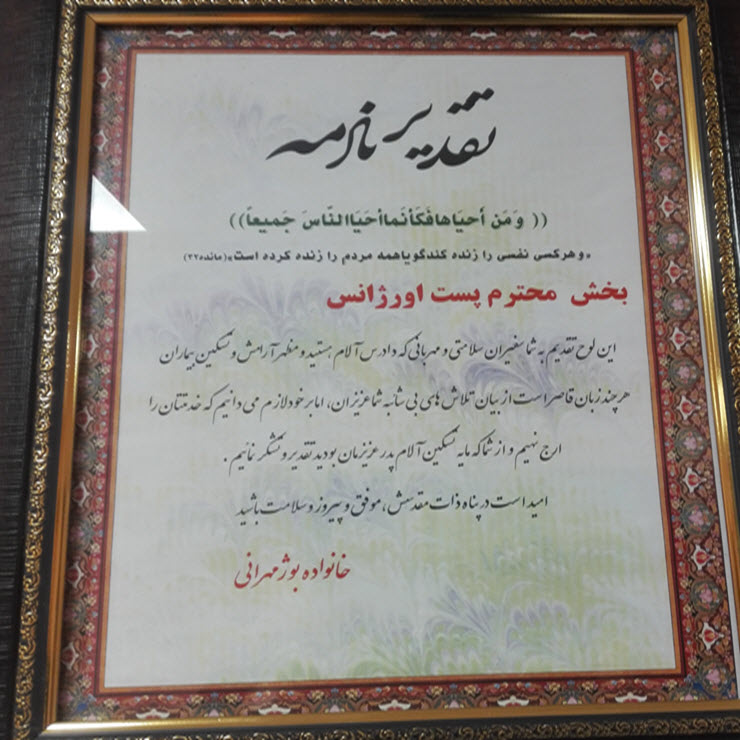 تقدیرنامه
(( وَ مَن أحیَاها فَکَأنَما أحیَا النّاسَ جَمیعاً))
«و هر کسی نفسی را زنده کند گویا همه مردم را زنده کرده است»(مائده۳۲)
بخش محترم پست اورژانس
این لوح تقدیم به شما سفیران سلامتی و مهربانی که دادرس آلام هستید و مظهر آرامش و تسکین بیماران
هر چند زبان قاصر است از بیان تلاش های بی شائبه شما عزیزان، اما بر خود لازم می دانیم که خدمتتان را
ارج نهیم و از شما که مایه تسکین آلام پدر عزیزمان بودید تقدیر و تشکر نمائیم.
امید است در پناه ذات مقدسش، موفق و پیروز و سلامت باشید
خانواده بوژمهرانی